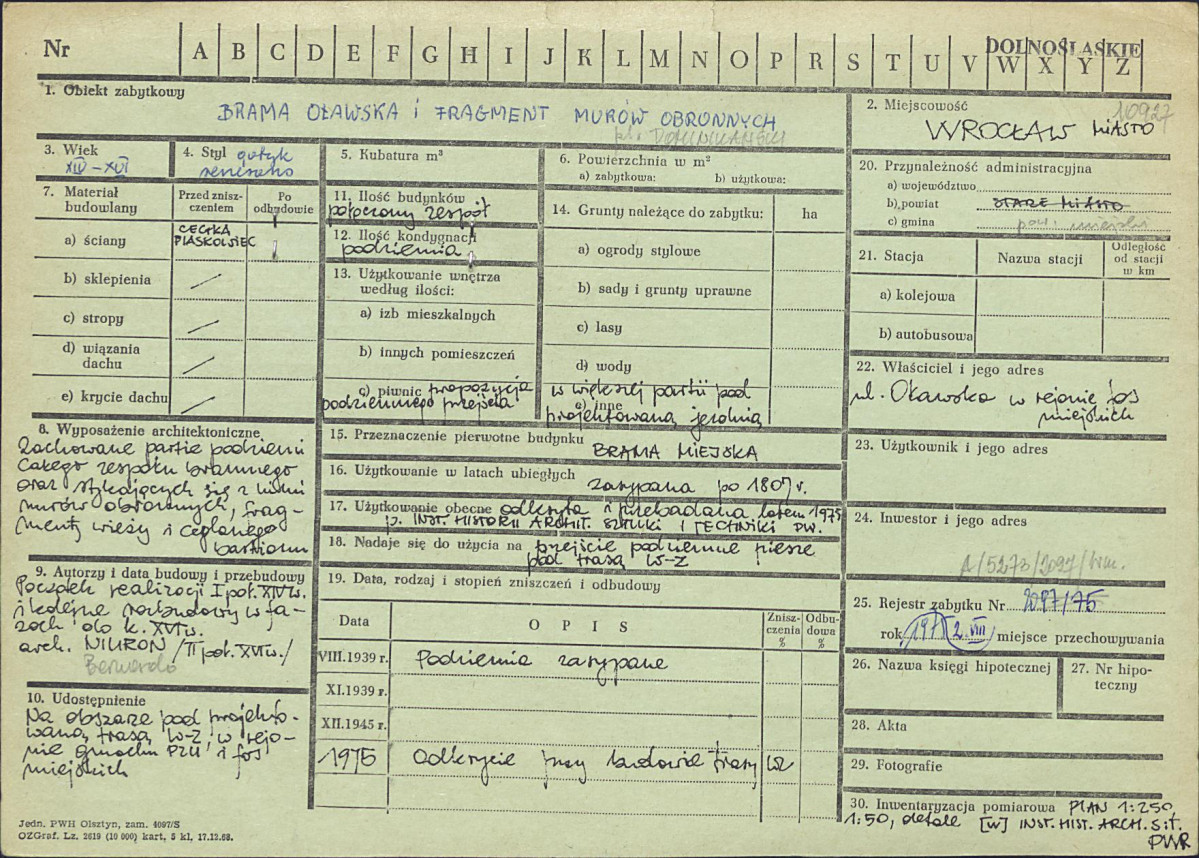 Nr A B C D E F G H I J K L M N O P R S T U V W X Y Z
DOLNOŚLĄSKIE
1. Obiekt zabytkowy
BRAMA OŁAWSKA i FRAGMENT MURÓW OBRONNYCH
pl. DOMINIKAŃSKI
2. Miejscowość
10927
WROCŁAW MIASTO
3. Wiek
XIV – XVI
4. Styl gotyk
renesans
5. Kubatura m³
6. Powierzchnia w m²
a) zabytkowa: b) użytkowa:
7. Materiał
budowlany
Przed znisz-
czeniem
Po
odbudowie
a) ściany
CEGŁA
PIASKOWIEC
b) sklepienia
c) stropy
d) wiązania
dachu
e) krycie dachu
8. Wyposażenie architektoniczne
Zachowane partie podziemi
całego zespołu bramnego
oraz stykających się z nimi
murów obronnych, frag-
menty wieży i ceglanego
bastionu
9. Autorzy i data budowy i przebudowy
Początek realizacji I poł. XIV w.
i kolejne rozbudowy w fa-
zach do k. XVI w.
arch. NIURON /II poł. XVI w./
Bernardo
10. Udostępnienie
Na obszarze pod projekto-
waną trasą W-Z w rejo-
nie gmachu PZU i fos
miejskich
11. Ilość budynków
połączony zespół
12. Ilość kondygnacji
podziemia
13. Użytkowanie wnętrza
według ilości:
a) izb mieszkalnych
b) innych pomieszczeń
c) piwnic propozycja
podziemnego przejścia
14. Grunty należące do zabytku: ha
a) ogrody stylowe
b) sady i grunty uprawne
c) lasy
d) wody
e) inne
w większej partii pod
projektowaną jezdnią
15. Przeznaczenie pierwotne budynku
BRAMA MIEJSKA
16. Użytkowanie w latach ubiegłych
zasypana po 1807 r.
17. Użytkowanie obecne odkryta i przebadana latem 1975
p. INST. HISTORII ARCHIT. SZTUKI I TECHNIKI PW.
18. Nadaje się do użycia na przejście podziemne piesze
pod trasą W-Z
19. Data, rodzaj i stopień zniszczeń i odbudowy
Data O P I S Znisz-
czenia
% Odbu-
dowa
%
VIII.1939 r. Podziemia zasypane
XI.1939 r.
XII.1945 r.
1975 Odkrycie przy budowie trasy WZ
20. Przynależność administracyjna
a) województwo
b) powiat STARE MIASTO
c) gmina pow. miejski
21. Stacja Nazwa stacji Odległość
od stacji
w km
a) kolejowa
b) autobusowa
22. Właściciel i jego adres
ul. Oławska w rejonie fos
miejskich
23. Użytkownik i jego adres
24. Inwestor i jego adres
A/5273/2097/Wm.
25. Rejestr zabytku Nr 2097/75
rok 1975 2.VIII miejsce przechowywania
26. Nazwa księgi hipotecznej
27. Nr hipo-
teczny
28. Akta
29. Fotografie
30. Inwentaryzacja pomiarowa PLAN 1:250
1:50, detale [w] INST. HIST. ARCH. S.i.T.
PWR
Jedn. PWH Olsztyn, zam. 4097/S
OZGraf. Lz. 2619 (10 000) kart. 5 kl. 17.12.68.